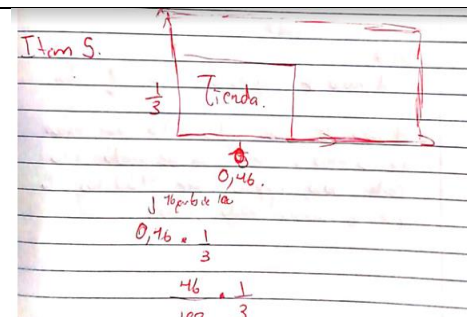 Item 5.
1/3 Tienda.
0,46.
0,46 · 1/3
46/100 · 1/3